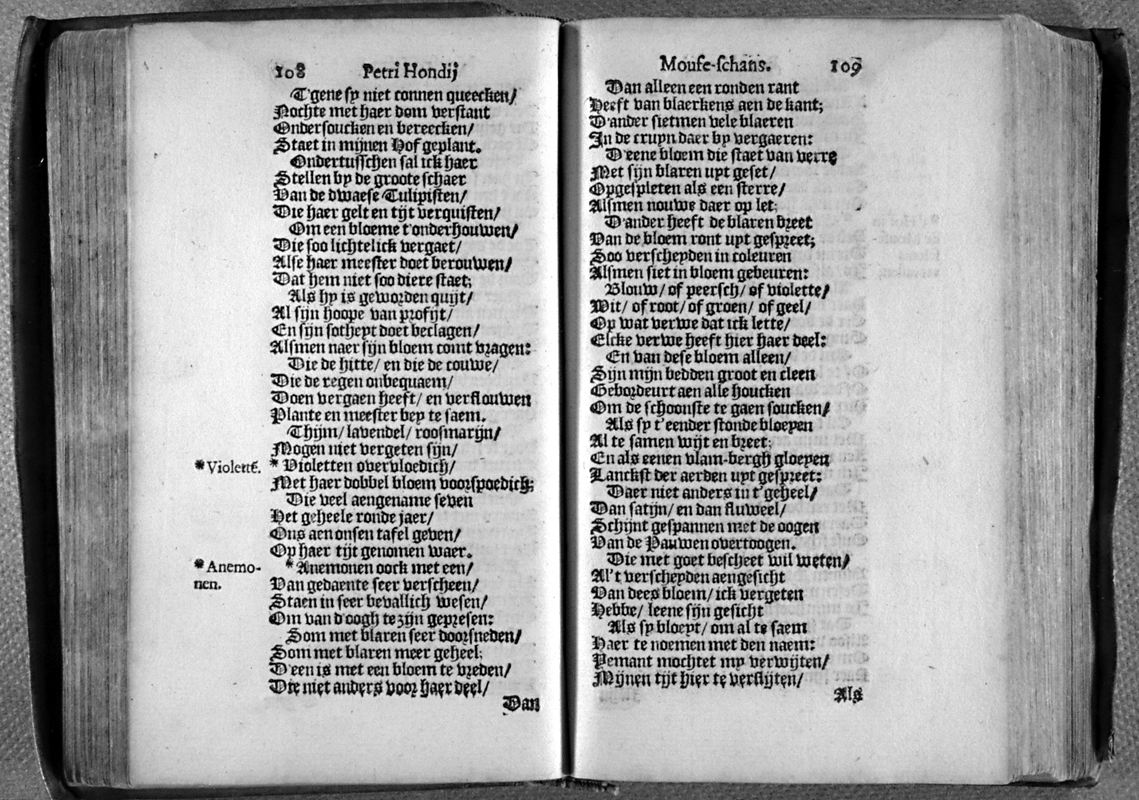 108 Petri Hondij
T'gene sy niet connen queecken/
Nochte met haer dom verstant
Ondersoucken en bereecken/
Staet in mijnen Hof geplant.
Ondertusschen sal ick haer
Stellen by de groote schaer
Van de dwaese Tulipisten/
Die haer gelt en tijt verquisten/
Om een bloeme t'onderhouwen/
Die soo lichtelick vergaet/
Alse haer meester doet berouwen/
Dat hem niet soo diere staet;
Als hy is geworden quijt/
Al sijn hoope van profijt/
En sijn sotheyt doet beclagen/
Alsmen naer sijn bloem comt vragen:
Die de hitte/ en die de couwe/
Die de regen onbequaem/
Doen vergaen heeft/ en verflouwen
Plante en meester bey te saem.
Thijm/ lavendel/ roosmarijn/
Mogen niet vergeten sijn/
*Violetté. * Violetten overvloedich/
Met haer dobbel bloem voorspoedich;
Die veel aengename seven
Het geheele ronde jaer/
Ons aen onsen tafel geven/
Op haer tijt genomen waer.
*Anemo- * Anemonen oock met een/
nen. Van gedaente seer verscheen/
Staen in seer bevallich wesen/
Om van d'oogh te zijn gepresen:
Som met blaren seer doorsneden/
Som met blaren meer geheel;
D'een is met een bloem te vreden/
Die niet anders voor haer deel/
Dan
Mouse-schans. 109
Dan alleen een ronden rant
Heeft van blaerkens aen de kant;
D'ander sietmen vele blaeren
In de cruyn daer by vergaeren:
D'eene bloem die staet van verre
Met sijn blaren uyt geset/
Opgespleten als een sterre/
Alsmen nouwe daer op let;
D'ander heeft de blaren breet
Van de bloem ront uyt gespreet;
Soo verscheyden in coleuren
Alsmen siet in bloem gebeuren:
Blouw/ of peersch/ of violette/
Wit/ of root/ of groen/ of geel/
Op wat verwe dat ick lette/
Elcke verwe heeft hier haer deel:
En van dese bloem alleen/
Sijn mijn bedden groot en cleen
Gebordeurt aen alle houcken
Om de schoonste te gaen soucken/
Als sy t'eender stonde bloeyen
Al te samen wijt en breet;
En als eenen vlam-bergh gloeyen
Lanckst der aerden uyt gespreet:
Daer niet anders in t'geheel/
Dan satijn/ en dan fluweel/
Schijnt gespannen met de oogen
Van de Pauwen overtoogen.
Die met goet bescheet wil weten/
Al't verscheyden aengesicht
Van dees bloem/ ick vergeten
Hebbe/ leene sijn gesicht
Als sy bloeyt/ om al te saem
Haer te noemen met den naem:
Yemant mochtet my verwijten/
Mijnen tijt hier te verslijten/
Als